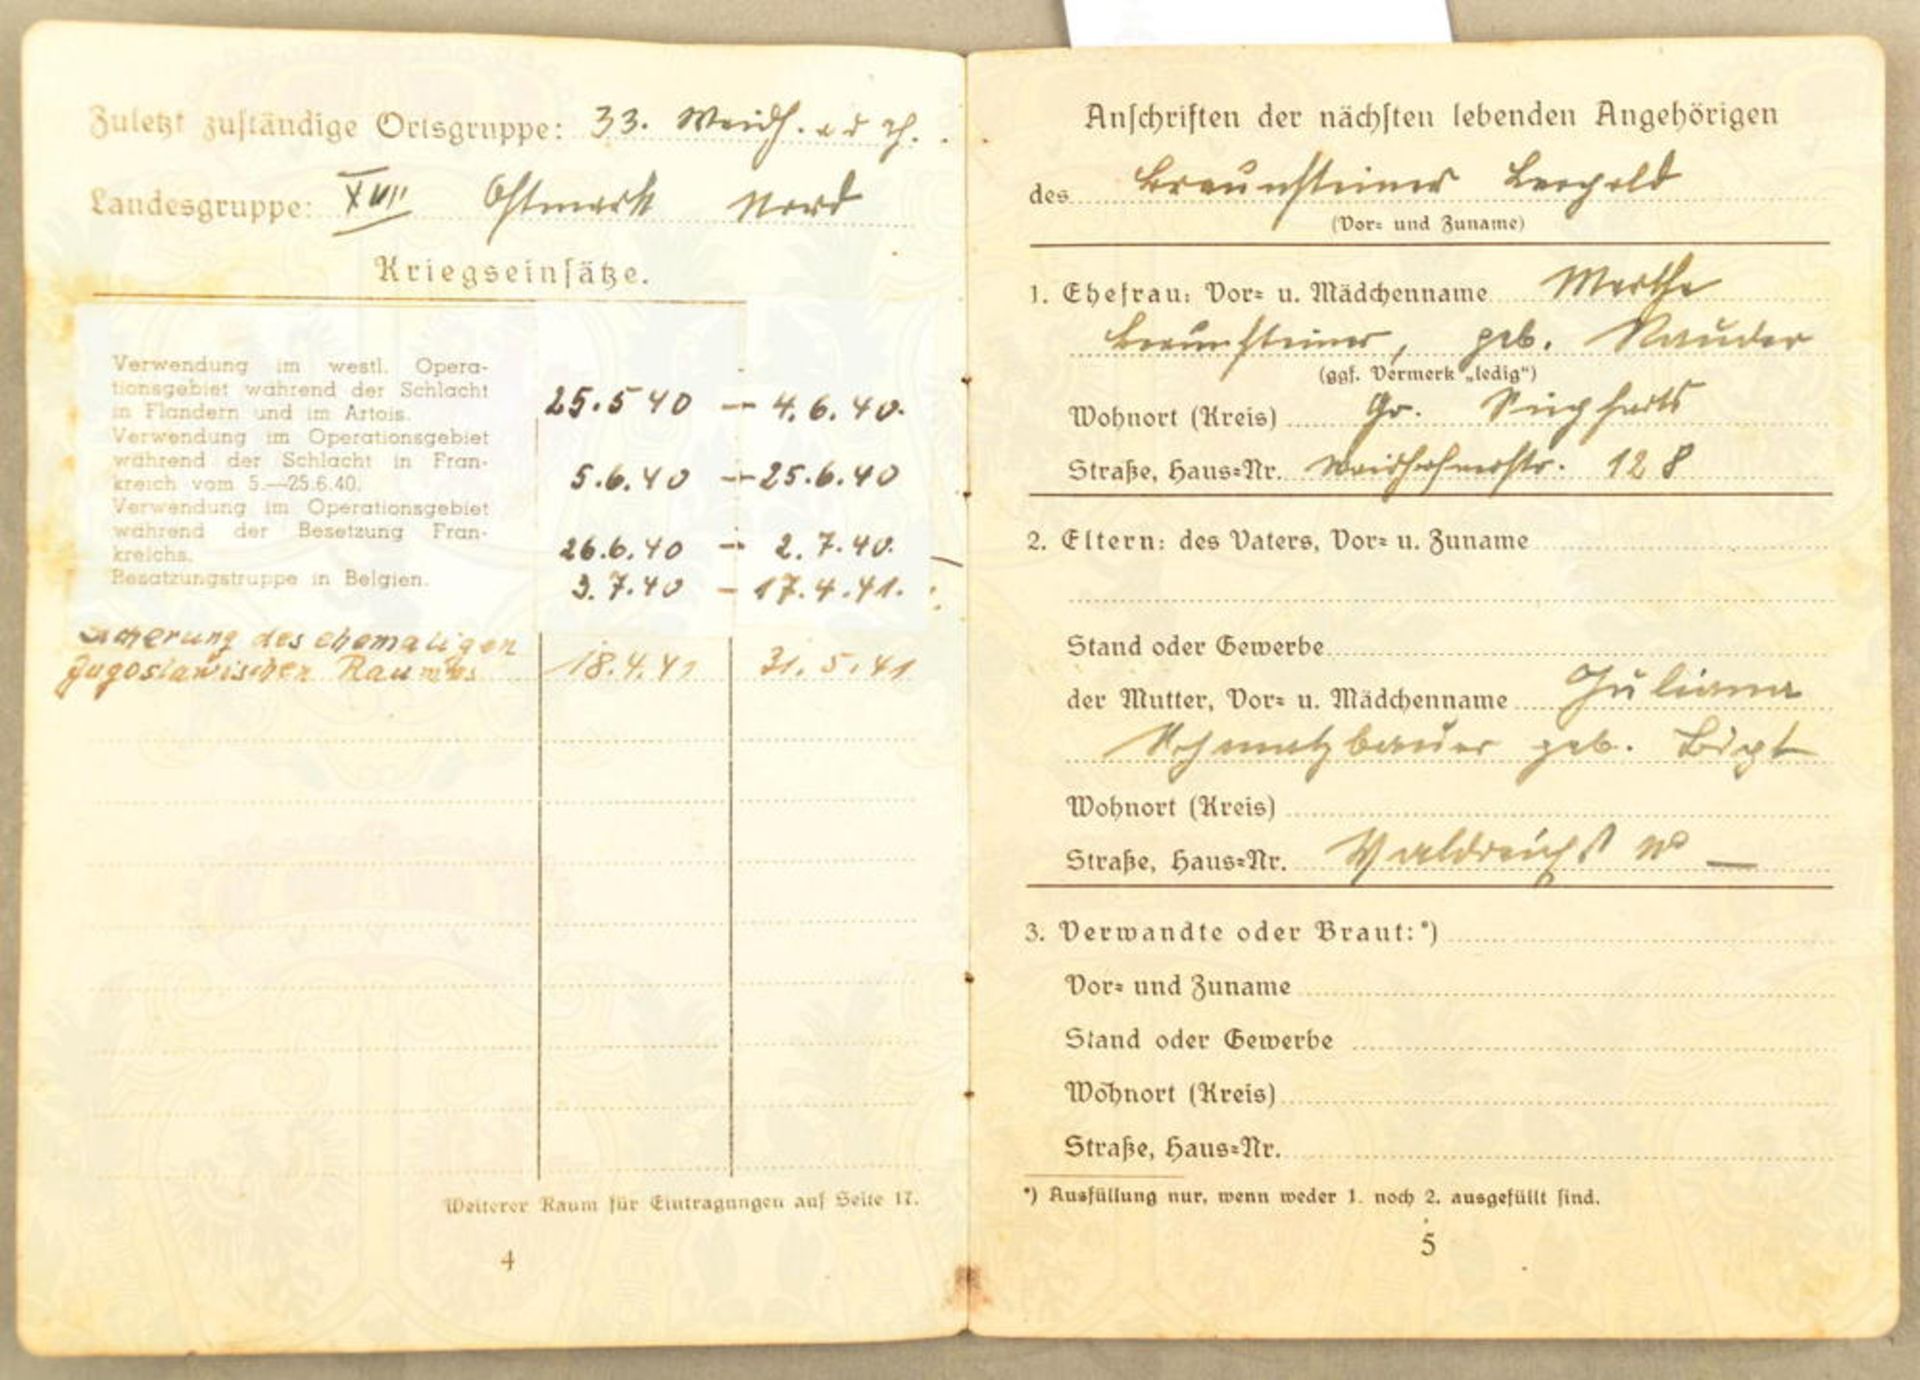 Zuletzt zuständige Ortsgruppe: 33. Weidh. a d Th.
Landesgruppe: XVII Ostmark Nord
Kriegseinsätze.
Verwendung im westl. Opera-
tionsgebiet während der Schlacht
in Flandern und im Artois. 25.5 40 — 4.6.40.
Verwendung im Operationsgebiet
während der Schlacht in Fran-
kreich vom 5.—25.6.40. 5.6.40 — 25.6.40
Verwendung im Operationsgebiet
während der Besetzung Fran-
kreichs. 26.6.40 — 2.7.40.
Besatzungstruppe in Belgien. 3.7.40 — 17.4.41.
Sicherung des ehemaligen
Jugoslawischen Raumes 18.4.41 31.5.41
Weiterer Raum für Eintragungen auf Seite 17.
4
Anschriften der nächsten lebenden Angehörigen
des Braunsteiner Leopold
(Vor= und Zuname)
1. Ehefrau: Vor= u. Mädchenname Marthe
Braunsteiner, geb. Nauder
(ggf. Vermerk „ledig“)
Wohnort (Kreis) Gr. Siegharts
Straße, Haus=Nr. Waidhofnerstr. 128
2. Eltern: des Vaters, Vor= u. Zuname
Stand oder Gewerbe
der Mutter, Vor= u. Mädchenname Juliana
Schmalzbauer geb.
Wohnort (Kreis)
Straße, Haus=Nr. Waldreichs No —
3. Verwandte oder Braut:*)
Vor= und Zuname
Stand oder Gewerbe
Wohnort (Kreis)
Straße, Haus=Nr.
*) Ausfüllung nur, wenn weder 1. noch 2. ausgefüllt sind.
5